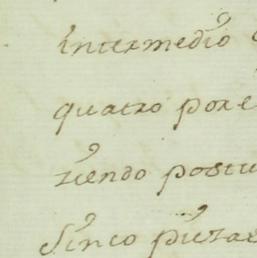 intermedio
quatro por e
siendo postu
Sinco piezas